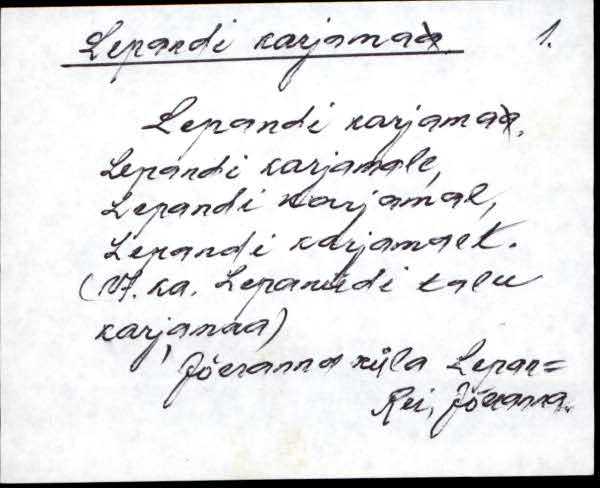 Lepandi karjamaa 1.
Lepandi karjamaa,
Lepandi karjamale,
Lepandi karjamal,
Lepandi karjamaelt.
(Vt. ka. Lepanudi talu
karjamaa)
Jõeranna küla Lepan=
Rei, Jõeranna.